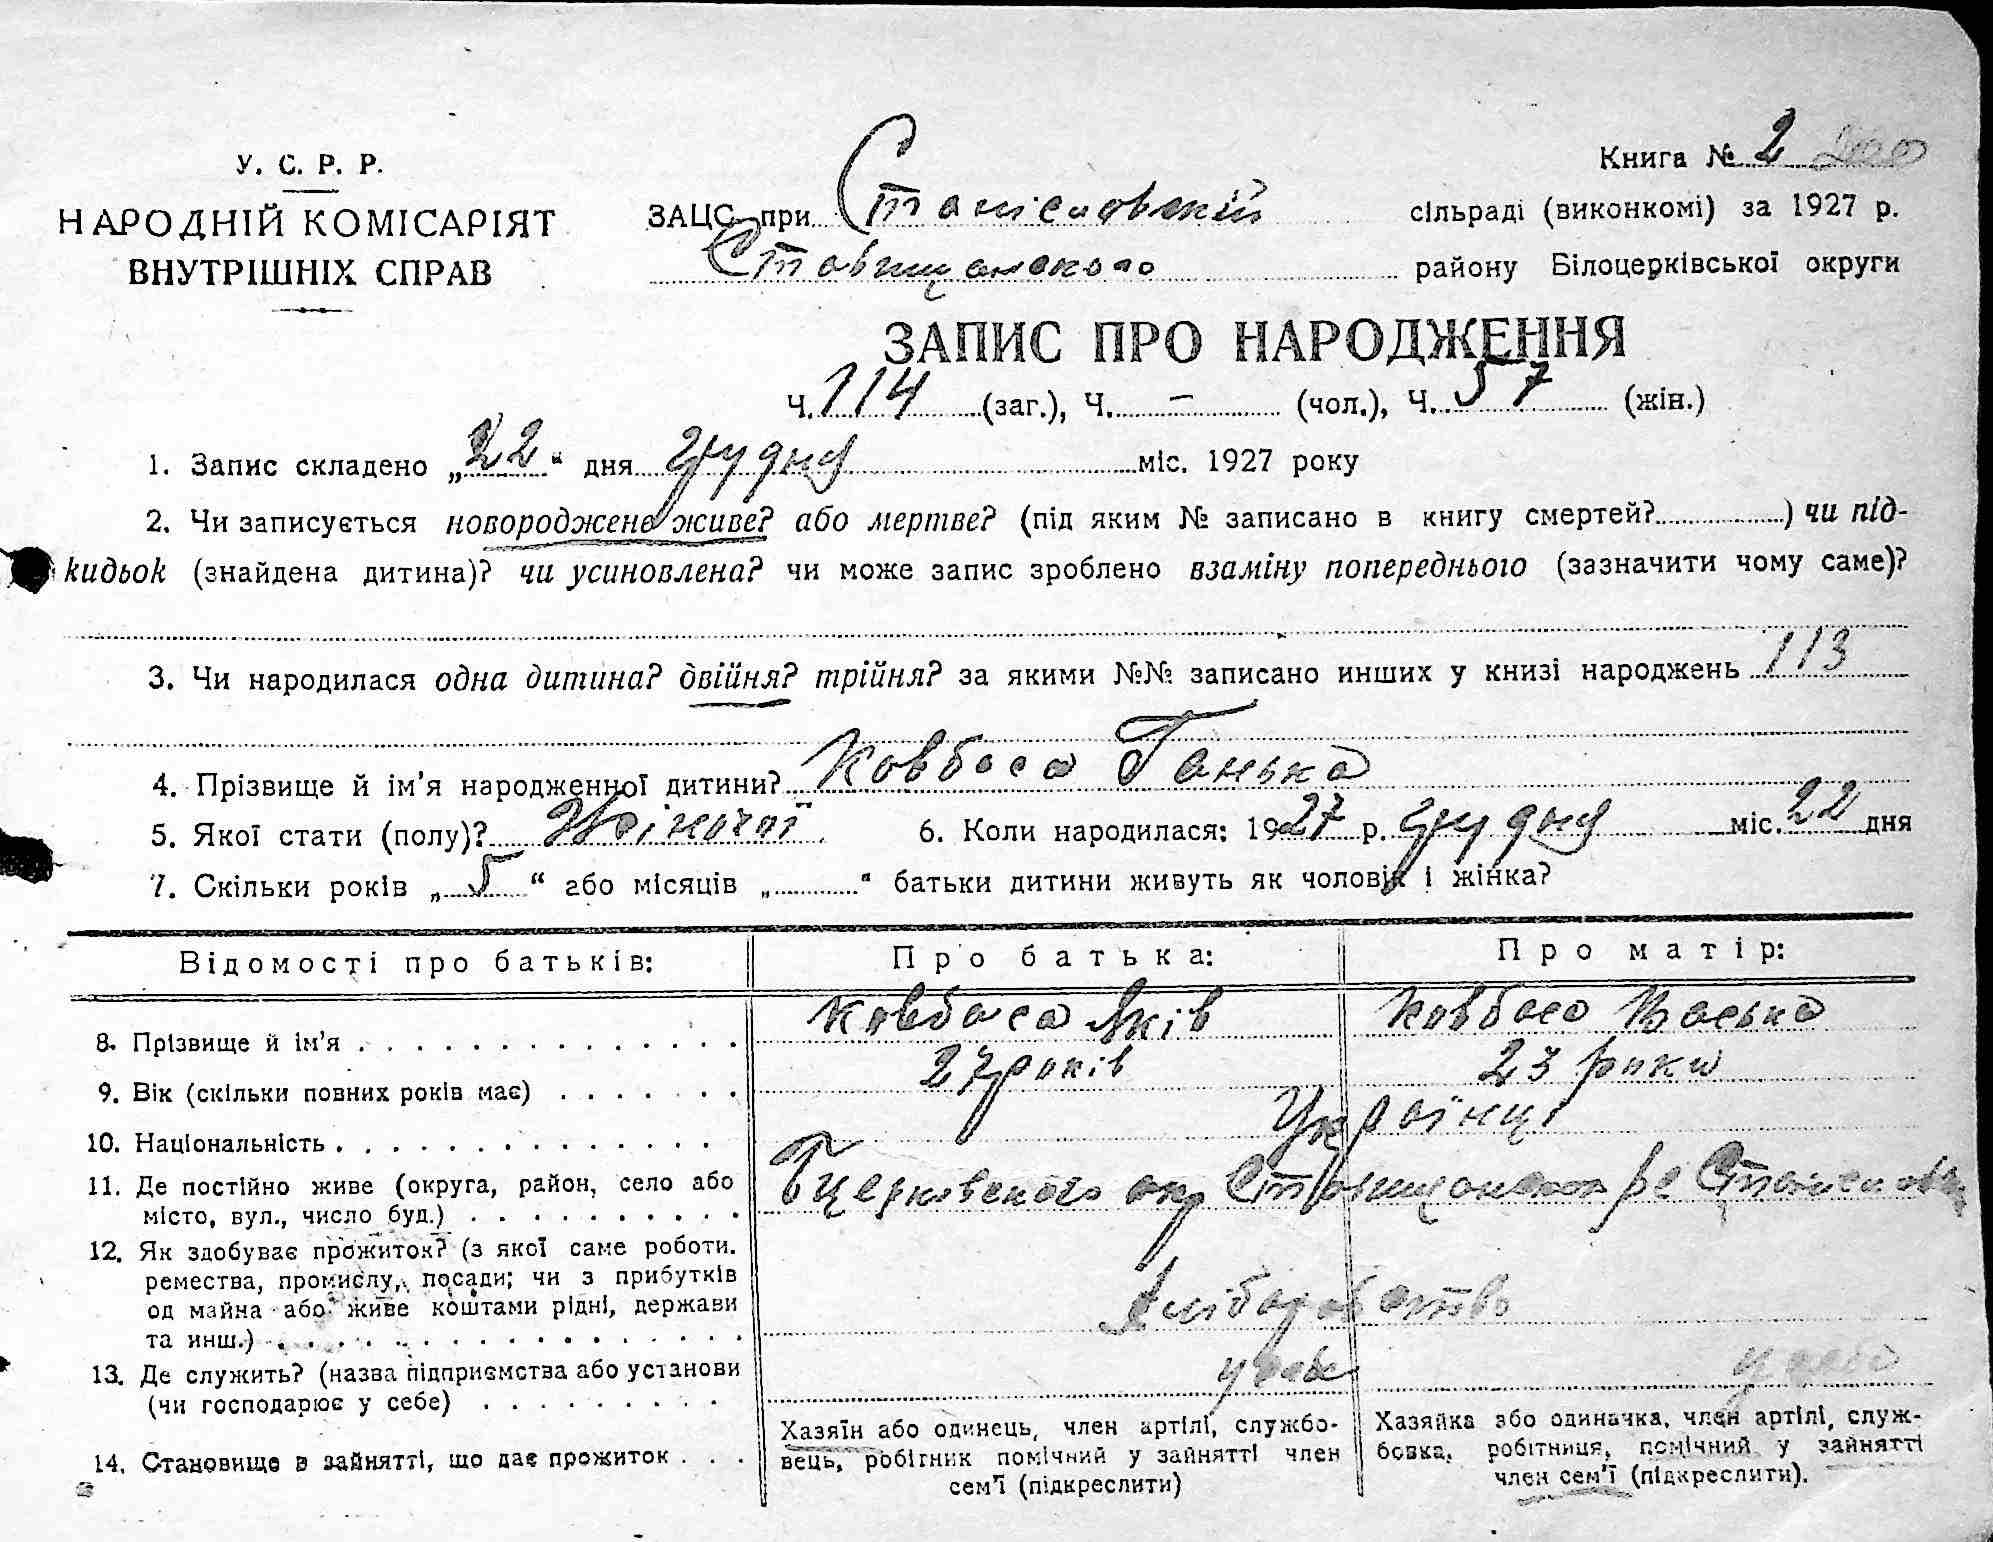 Книга № 2 200
У. С. Р. Р.
НАРОДНІЙ КОМІСАРІЯТ
ВНУТРІШНІХ СПРАВ
ЗАЦС при Станіславській сільраді (виконкомі) за 1927 р.
Ставищанского району Білоцерківської округи
ЗАПИС ПРО НАРОДЖЕННЯ
Ч. 114 (заг.), Ч. – (чол.), Ч. 57 (жін.)
1. Запис складено „22“ дня грудня міс. 1927 року
2. Чи записується новороджене живе? або мертве? (під яким № записано в книгу смертей? ) чи під-
кидьок (знайдена дитина)? чи усиновлена? чи може запис зроблено взаміну попереднього (зазначити чому саме)?
3. Чи народилася одна дитина? двійня? трійня? за якими №№ записано инших у книзі народжень 113
4. Прізвище й ім'я народженної дитини? Ковбаса Ганька
5. Якої стати (полу)? Жіночої 6. Коли народилася: 1927 р. грудня міс. 22 дня
7. Скільки років „5“ або місяців „ “ батьки дитини живуть як чоловік і жінка?
Відомості про батьків: Про батька: Про матір:
8. Прізвище й ім'я Ковбаса Яків Ковбаса Васька
9. Вік (скільки повних років має) 27 років 23 роки
10. Національність Українці
11. Де постійно живе (округа, район, село або
місто, вул., число буд.) Бцерковского окр Ставищанского
12. Як здобуває прожиток? (з якої саме роботи.
ремества, промислу, посади; чи з прибутків
од майна або живе коштами рідні, держави
та инш.) Хліборобство
13. Де служить? (назва підприємства або установи
(чи господарює у себе)
14. Становище в зайнятті, що дає прожиток
Хазяїн або одинець, член артілі, службо-
вець, робітник помічний у зайнятті член
сем'ї (підкреслити)
Хазяйка або одиначка, член артілі, служ-
бовка, робітниця, помічний у зайнятті
член сем'ї (підкреслити).